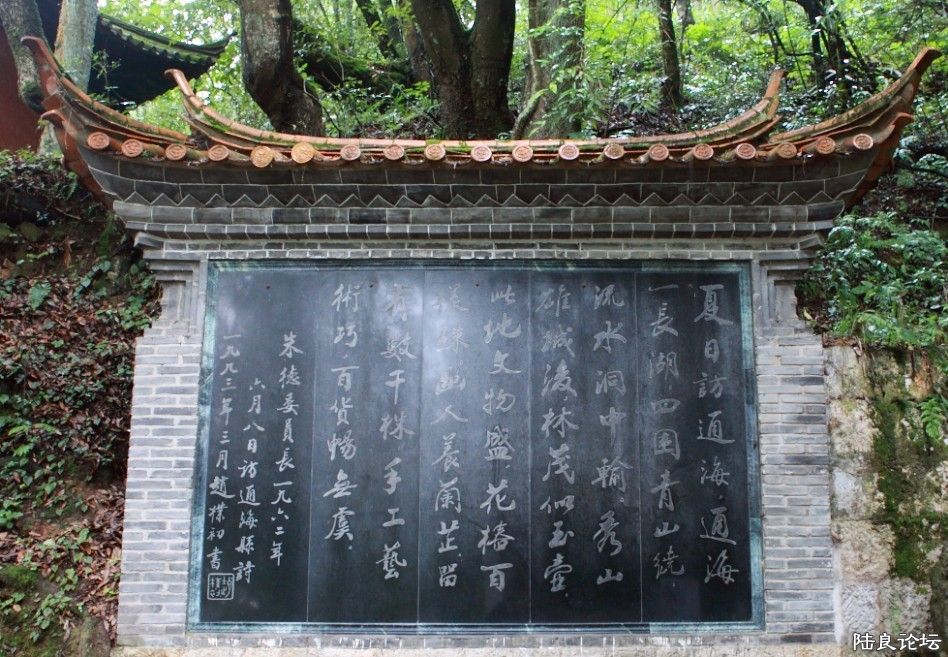 夏日訪通海.通海
一長湖四围青山绕.
流水洞中輸.秀山
雄城後.林茂似玉壺.
此地文物盛.花椿百
幽人養蘭芷.留
有數千株手工藝
術巧.百貨暢无虞.
朱德委員長一九六二年
六月八日訪通海縣詩
一九九三年三月趙樸初書
陆良论坛